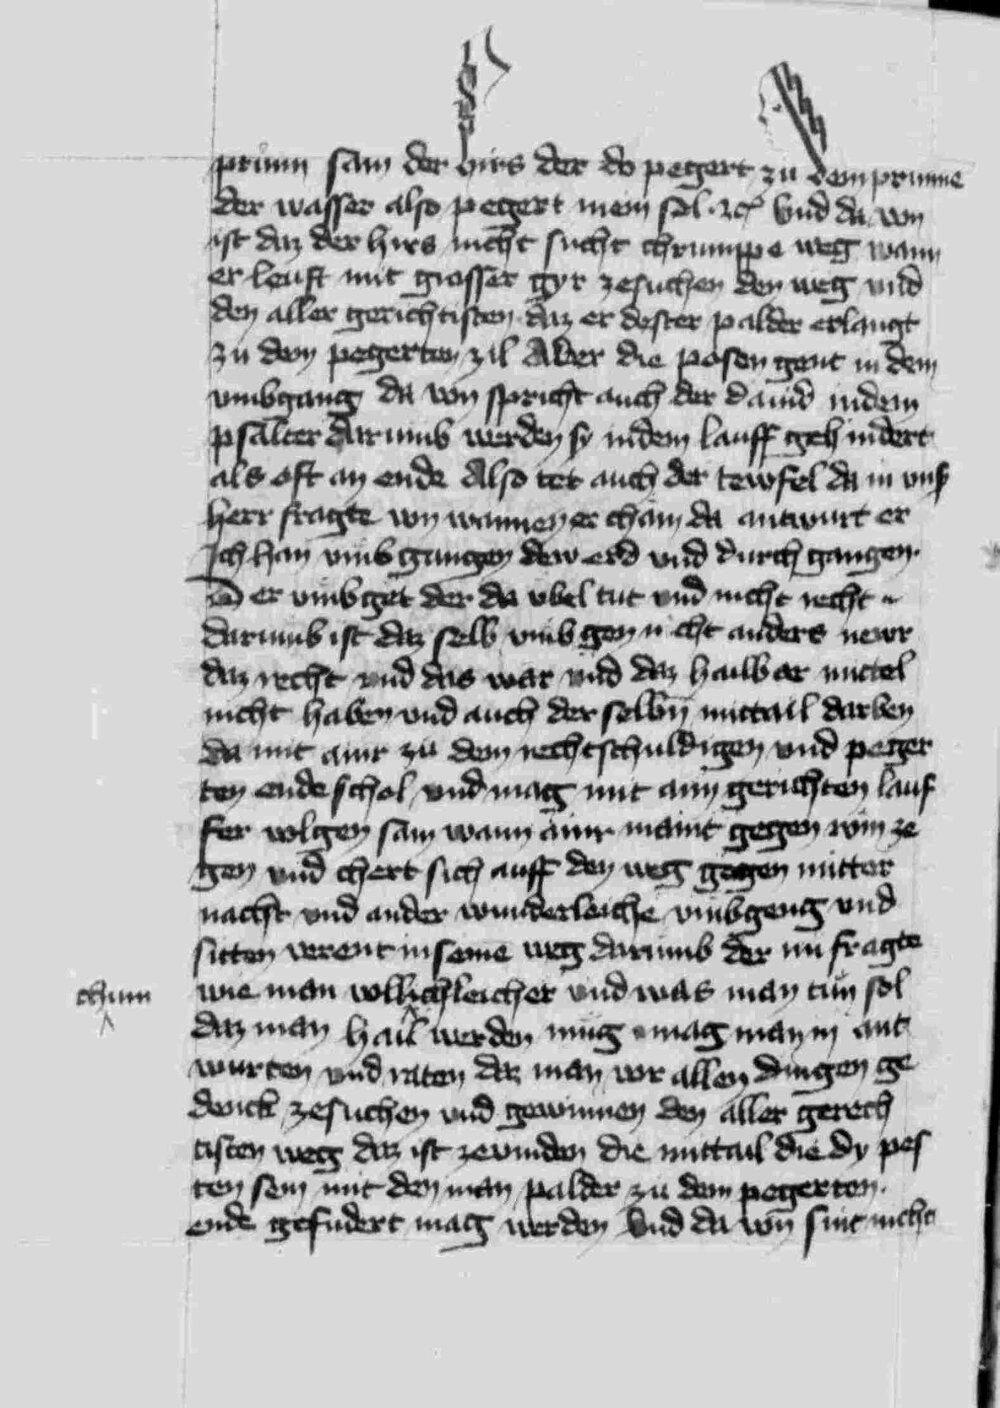 prunn sam der hirs der do pegert zu dem prunnē
der wasser also pegert mein sel ꝛc̄ Vnd da von
ist daz der hirs nicht sucht chrumppe weg wann
er leuft mit grosser gyr zesuchen den weg vnd
den aller gerichtisten daz er dester palder erlangt
zu dem pegerten zil Aber die posen gent in dem
vmbgang da von spricht auch der dauid indem
psalter darumb werden sy indem lauff gehindert
als oft an ende Also tet auch der tewfel da in vnser
herr fragte von wannen er cham da antwurt er
Ich han vmbgangen dew erd vnd durch gangen.
Der vmbget der da vbel tut vnd nicht recht
darumb ist daz selb vmbgen nicht anders newr
daz recht vnd das war vnd daz hailber mittel
nicht haben vnd auch der selbn̄ mittail darben
da mit ainr zu dem rechtschuldigen vnd peger
ten ende schol vnd mag mit aim gerichten lauf
fer volgen sam wann ainr maint gegen rom ze
gen vnd chert sich auff den weg gegen mitter
nacht vnd ander wunderleiche vmbgeng vnd
sitten verent in seinē weg darumb der nu fragte
wie man vollichleicher vnd was man tun sol
chum
daz man hail werden mug mag man im ant
wurten vnd raten daz man vor allen dingen ge
denck zesuchen vnd gewinnen den aller gerech
tisten weg daz ist zevinden die mittail die dy pes
ten sein mit den man palder zu dem pegerten.
ende gefudert mag werden Vnd da von sint nicht